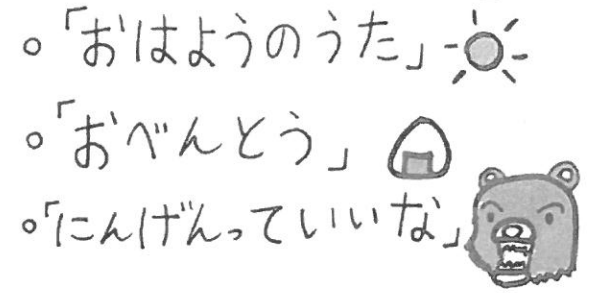 ○「おはようのうた」
○「おべんとう」
○「にんげんっていいな」